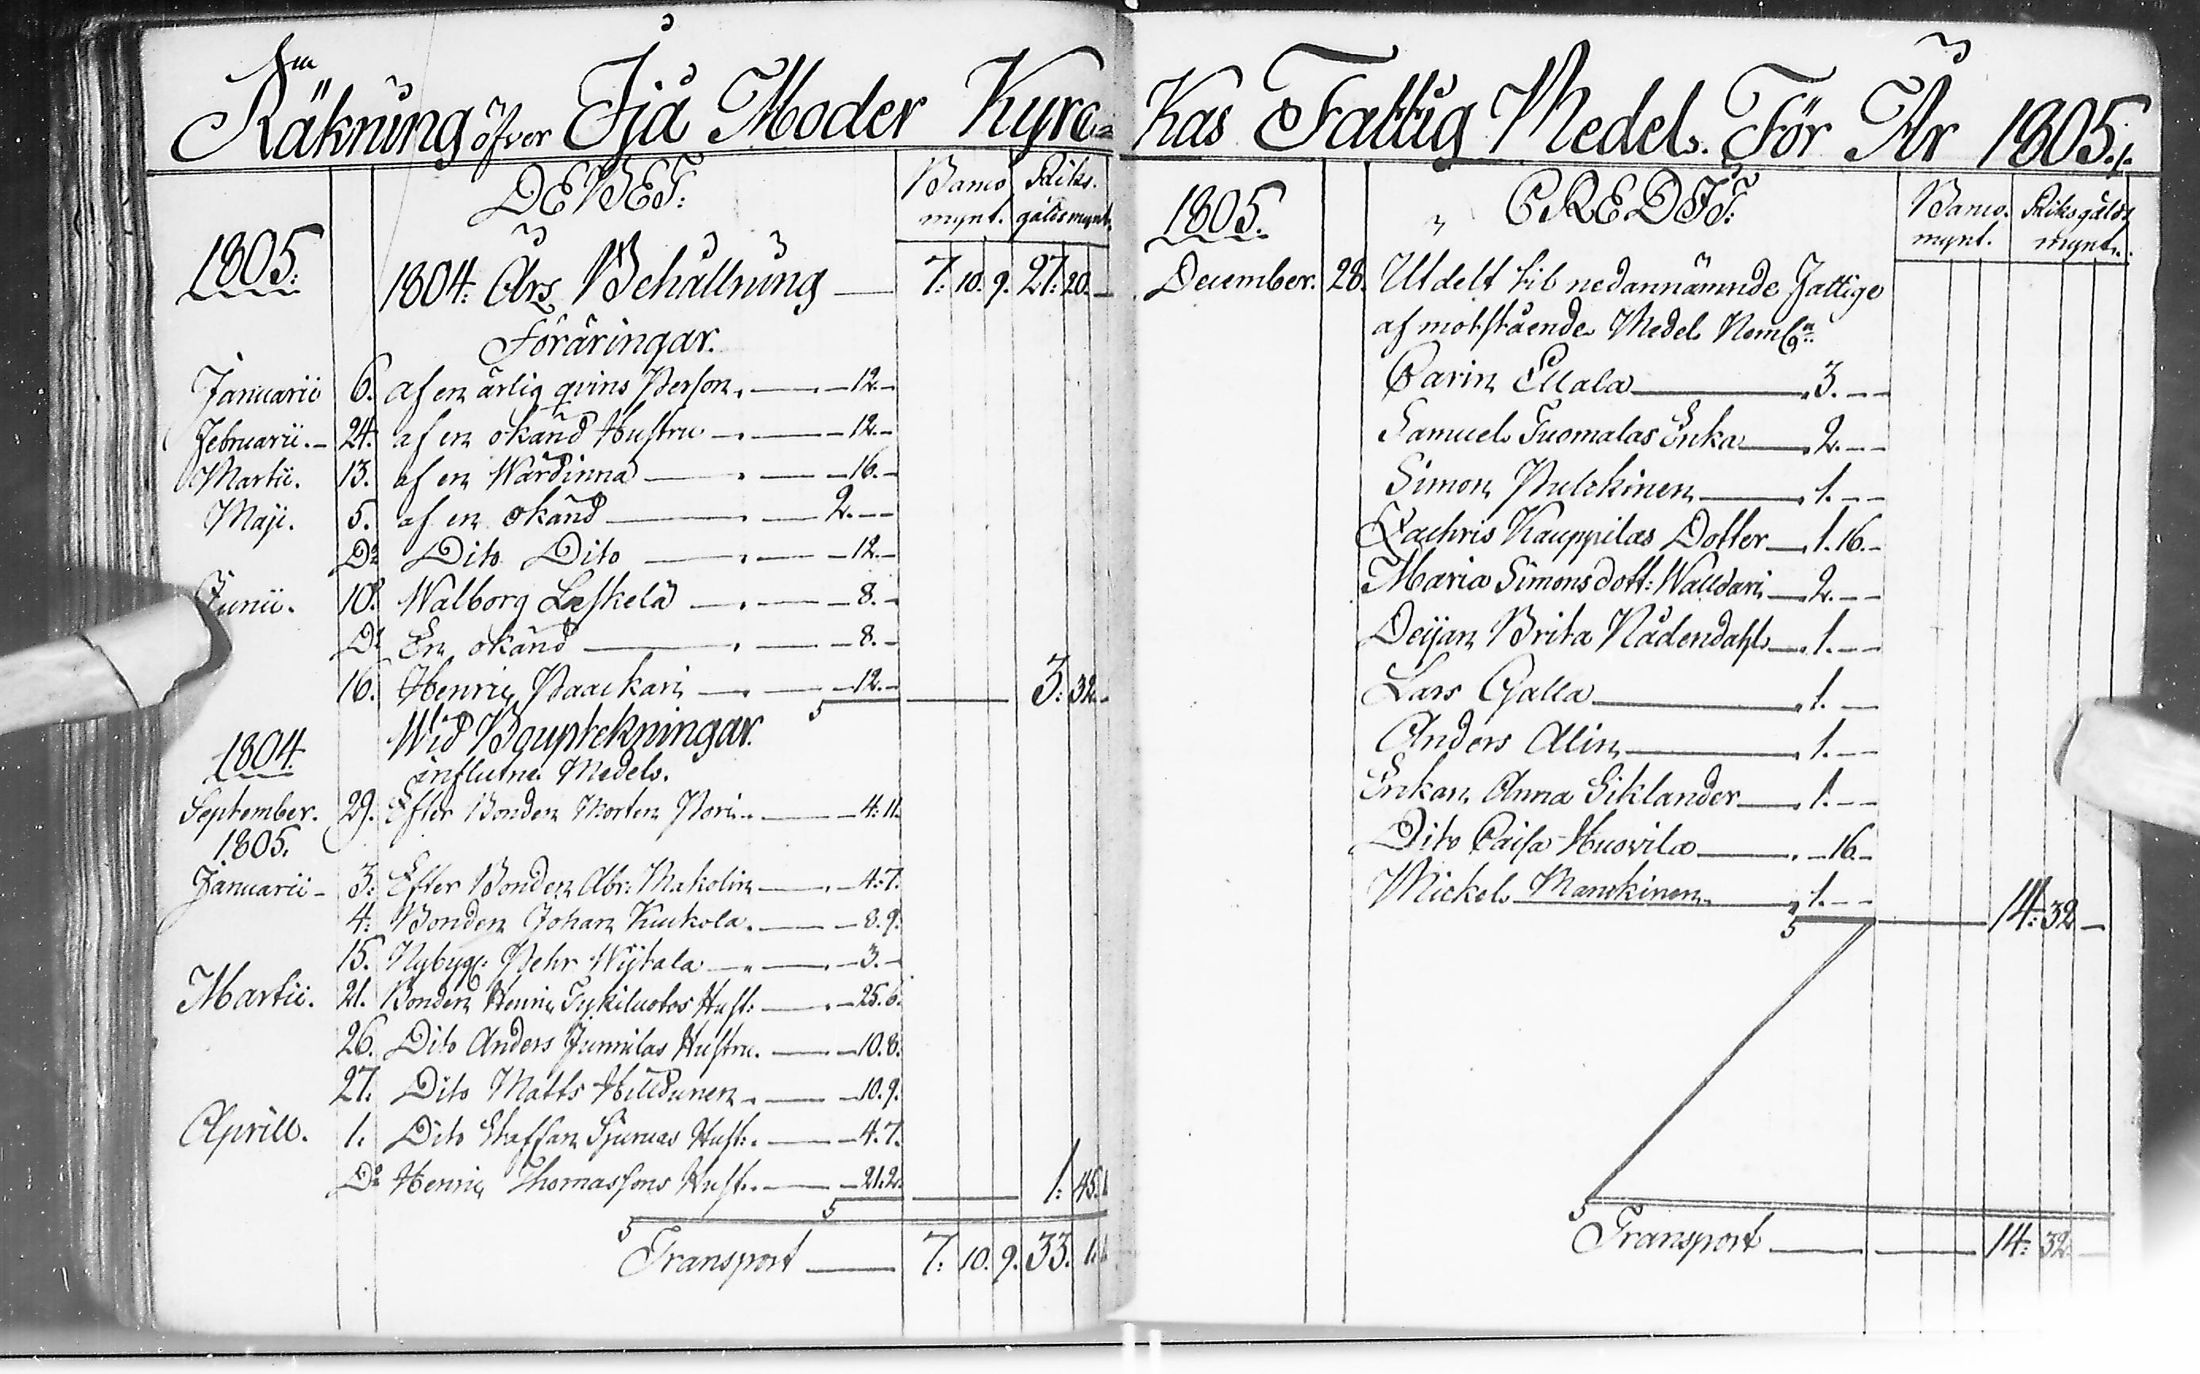 Räkning öfver Ijå Moder Kyrc=
DEBET:
Banco mynt. Riks. gälds mynt.
1805. 1804. Års Behållning — 7. 10. 9. 27. 20. —
Föräringar.
Januarii 6. af en ärlig qvins Person. — 12. —
Februarii. 24. af en okänd Hustru — 12. —
Martii. 13. af en Wärdinna — 16. —
Maji. 5. af en okänd — 2. — —
Do Dito Dito — 12. —
Junii. 10. Walborg Leskelä — 8. —
Do En okänd — 8. —
16. Henric Paackari — 12. — 3. 32. —
1804. Wid Boupteckningar
influtne Medel.
September. 29. Efter Bonden Morten Pori — 4. 11.
1805.
Januarii 3. Efter Bonden Abr: Makolin — 4. 7.
4. Bonden Johan Kuckola. — 8. 9.
15. Nybygg: Pehr Wijtala — 3. —
Martii. 21. Bonden Henric Tykiluotos Hust: — 25. 6.
26. Dito Anders Junnilas Hustru. — 10. 8.
27. Dito Matts Hilldunen — 10. 9.
Aprill. 1. Dito Staffan Hust: — 4. 7.
Do Henric Thomassons Hust. — 21. 2. 1. 45. 1.
Transport — 7. 10. 9. 33. 1. 1.
Kas Fattig Medel. För År 1805./.
1805. CREDIT:
Banco. mynt. Riksgälds mynt.
December. 28. Utdelt til nedannämnde Fattige
af motstående Medel Neml:n
Carin Ellala — 3. — —
Samuel Tuomalas Enka — 2. — —
Simon Pulckinen — 1. — —
Zachris Kauppilas Dotter — 1. 16. —
Maria Simonsdott: Walldari — 2. — —
Deijan Brita Nådendahl — 1. — —
Lars Galla — 1. —
Anders Alin — 1. — —
Enkan Anna Siklander — 1. — —
Dito Caisa Huovila — 16. —
Mickel Manckinen — 1. — — 14. 32 —
Transport — 14. 32 —